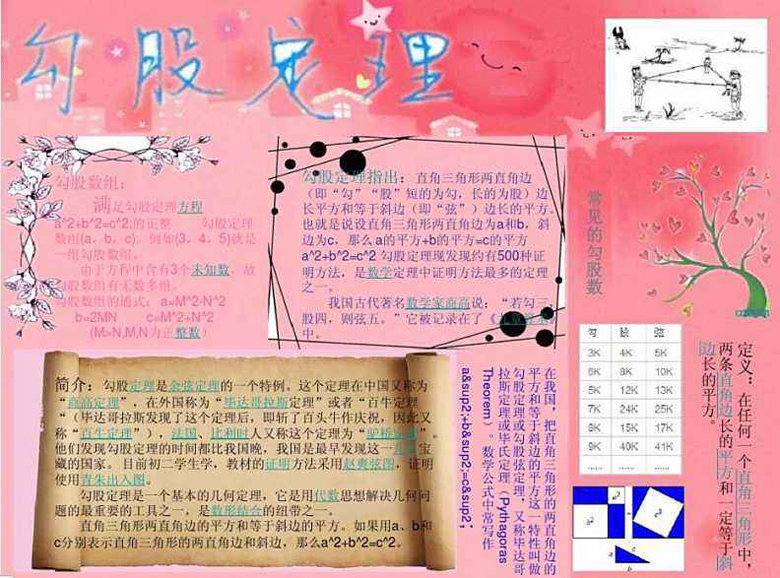 勾股定理
勾股数组：
满足勾股定理方程
a^2+b^2=c^2;的正整 勾股定理
数组(a，b，c)。例如(3，4，5)就是
一组勾股数组。
由于方程中含有3个未知数，故
勾股数组有无数多组。
勾股数组的通式：a=M^2-N^2
b=2MN c=M^2+N^2
(M>N,M,N为正整数)
勾股定理指出：直角三角形两直角边
（即“勾”“股”短的为勾，长的为股）边
长平方和等于斜边（即“弦”）边长的平方。
也就是说设直角三角形两直角边为a和b，斜
边为c，那么 a的平方+b的平方=c的平方
a^2+b^2=c^2 勾股定理现发现约有500种证
明方法，是数学定理中证明方法最多的定理
之一。
我国古代著名数学家商高说：“若勾三，
股四，则弦五。”它被记录在了《
中。
常见的勾股数
勾 股 弦
3K 4K 5K
6K 8K 10K
5K 12K 13K
7K 24K 25K
8K 15K 17K
9K 40K 41K
...... ...... ......
定义：在任何一个直角三角形中，
两条直角边长的平方和一定等于斜
边长的平方。
简介：勾股定理是余弦定理的一个特例。这个定理在中国又称为
“商高定理”，在外国称为“毕达哥拉斯定理”或者“百牛定理
“（毕达哥拉斯发现了这个定理后，即斩了百头牛作庆祝，因此又
称“百牛定理”），法国、比利时人又称这个定理为“驴桥定理”。
他们发现勾股定理的时间都比我国晚，我国是最早发现这一几何宝
藏的国家。目前初二学生学，教材的证明方法采用赵爽弦图，证明
使用青朱出入图。
勾股定理是一个基本的几何定理，它是用代数思想解决几何问
题的最重要的工具之一，是数形结合的纽带之一。
直角三角形两直角边的平方和等于斜边的平方。如果用a、b和
c分别表示直角三角形的两直角边和斜边，那么a^2+b^2=c^2。
在我国，把直角三角形的两直角边的
平方和等于斜边的平方这一特性叫做
勾股定理或勾股弦定理，又称毕达哥
拉斯定理或毕氏定理（Pythagoras
Theorem）。数学公式中常写作
a&sup2;+b&sup2;=c&sup2;
a²
b²
c²